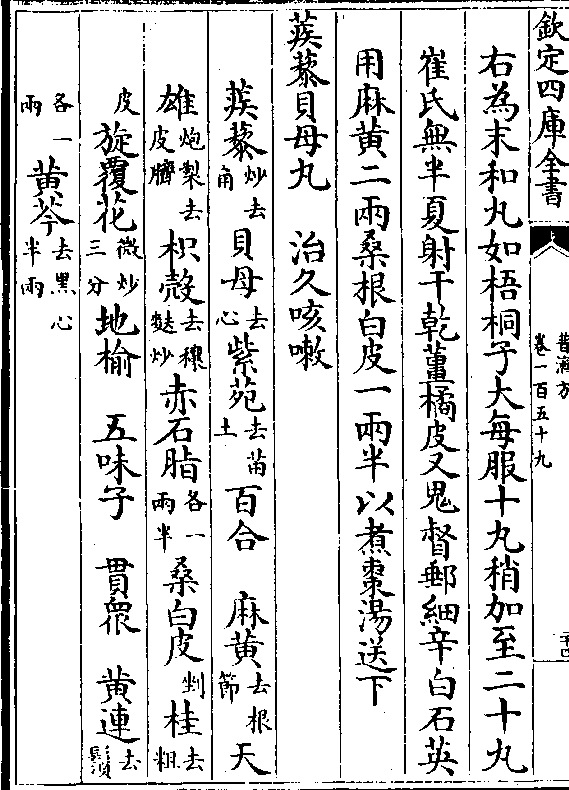 欽定四庫全書
普濟方
卷一百五十九
右為末和丸如梧桐子大每服十丸稍加至二十丸
崔氏無半夏射干乾薑橘皮又鬼督郵細辛白石英
用麻黄二兩桑根白皮一兩半以煮棗湯送下
蒺藜貝母丸　治久咳嗽
蒺藜炒去角貝母去心紫苑去苗土百合　麻黄去根節天
雄炮裂去皮臍枳殻去穰麩炒赤石脂各一兩半桑白皮剉桂去粗
皮旋覆花微炒三分地榆　五味子　貫衆　黄連去鬚
各一兩黄芩去黑心半兩